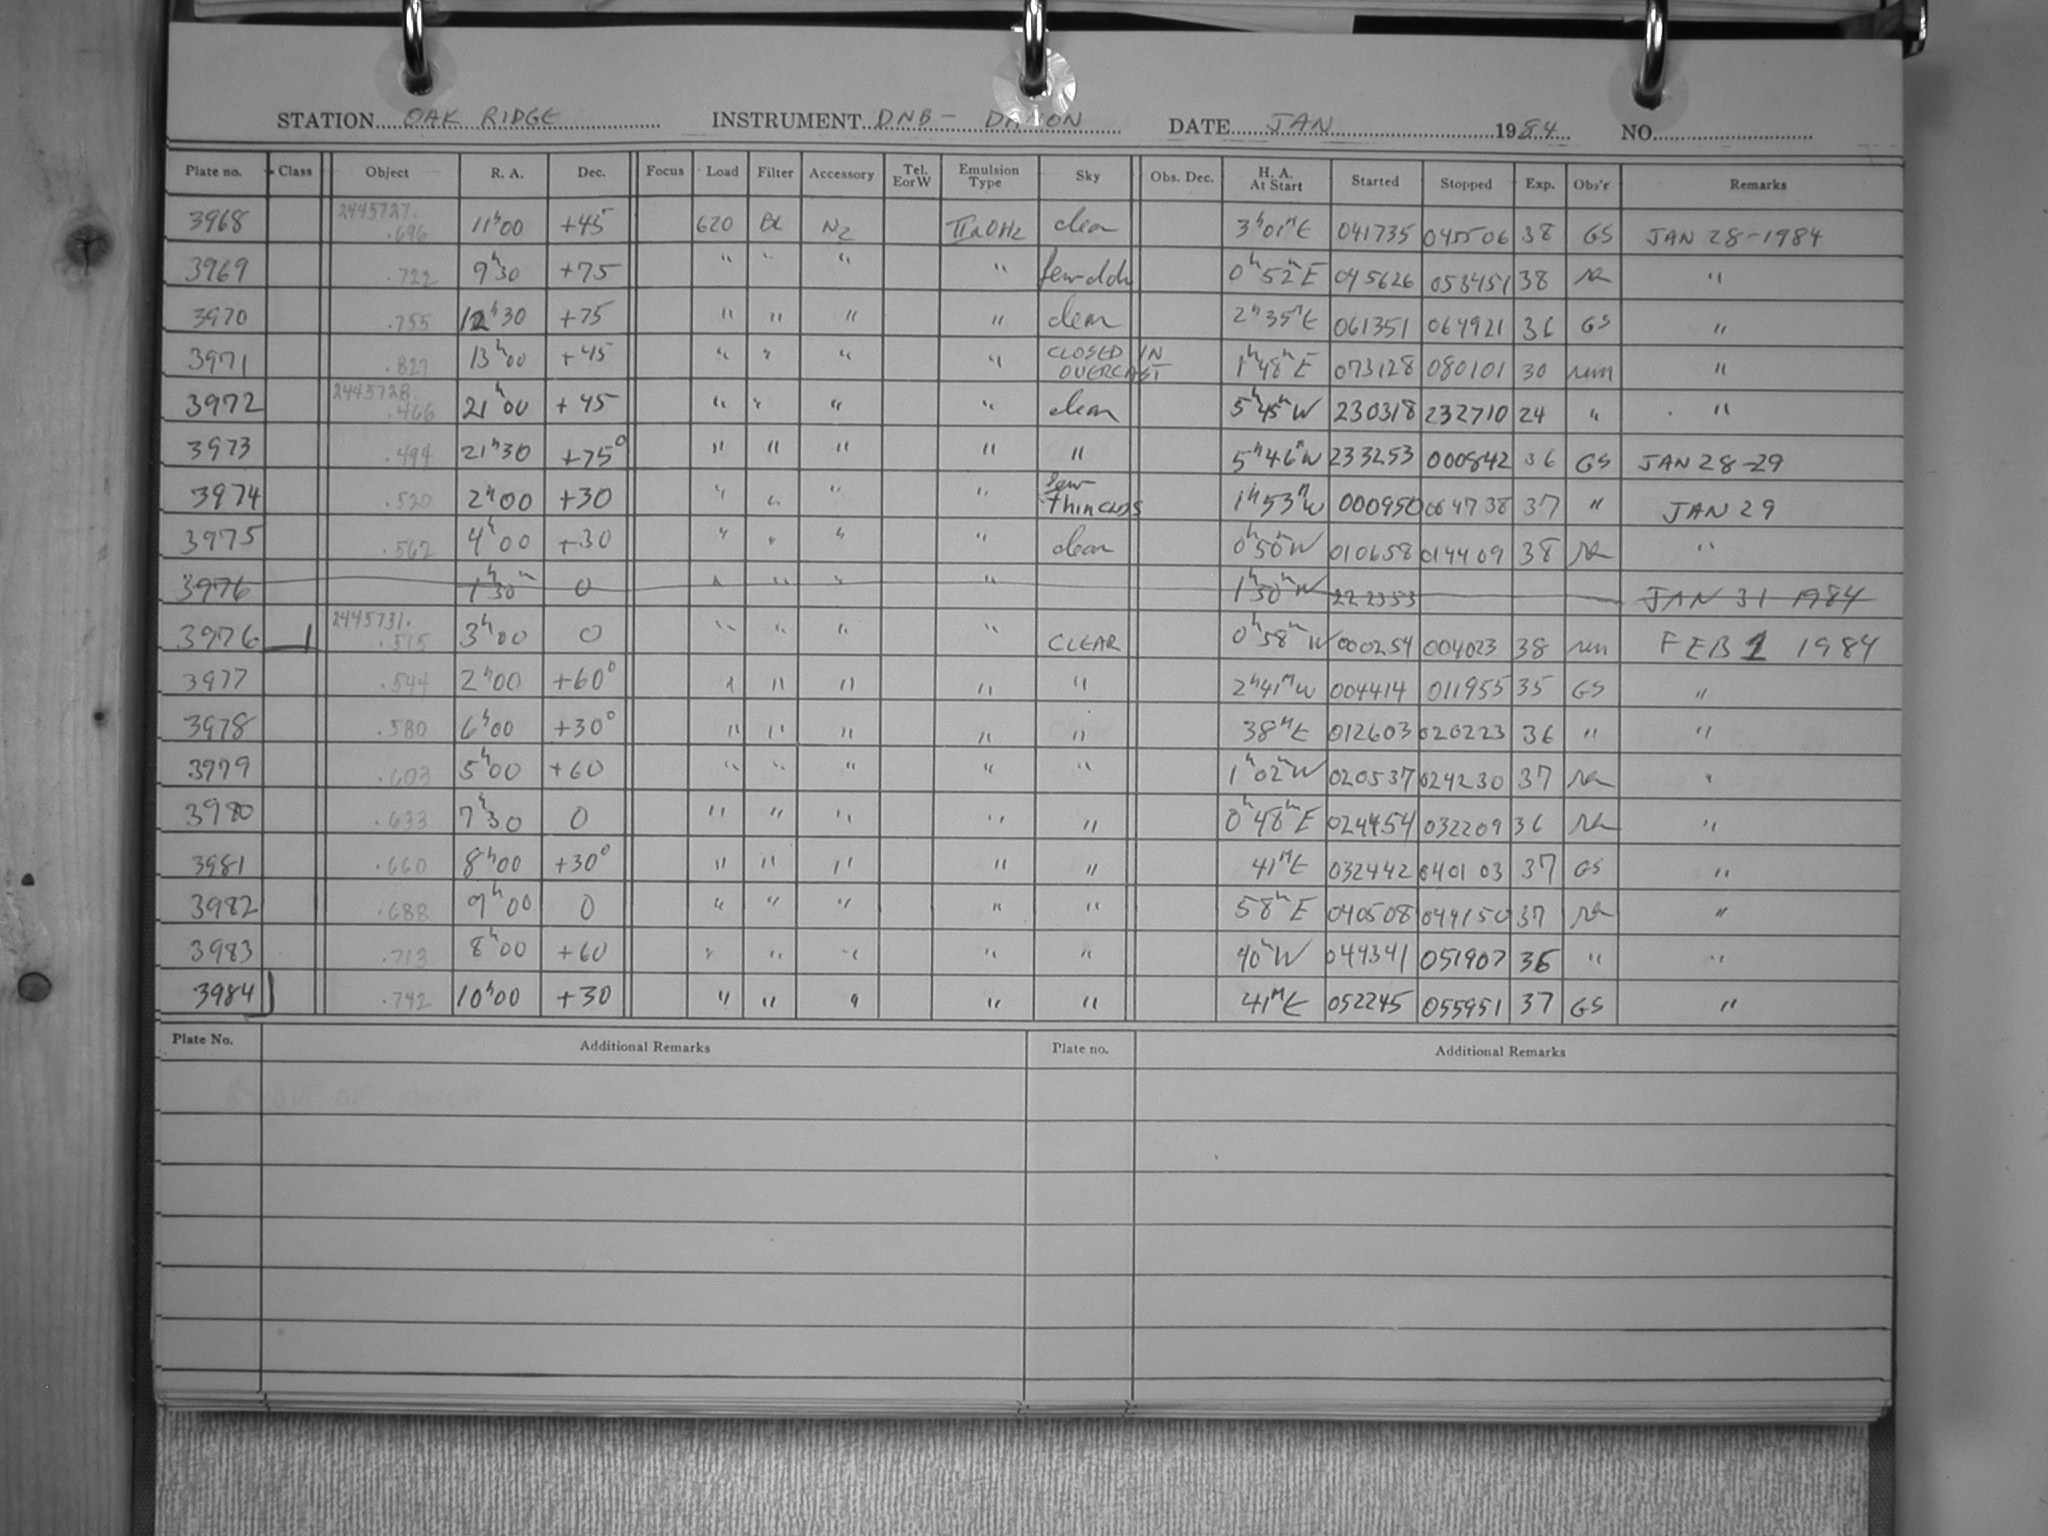 STATION OAK RIDGE INSTRUMENT DNB - DAMON DATE JAN 1984 NO.
Plate no. Class Object R. A. Dec. Focus Load Filter Accessory Tel. EorW Emulsion Type Sky Obs. Dec. H. A. At Start Started Stopped Exp. Obs'r Remarks
3968 2445727. .696 11h00 +45 620 BL N2 IIaOH2 clear 3h01mE 041735 045506 38 GS JAN 28-1984
3969 .722 9h30 +75 " " " " few clds 0h52mE 045626 053451 38 "
3970 .755 12h30 +75 " " " " clear 2h35mE 061351 064921 36 GS "
3971 .827 13h00 +45 " " " " CLOSED IN OVERCAST 1h48mE 073128 080101 30 "
3972 2445728. .466 21h00 +45 " " " " clear 5h45mW 230318 232710 24 " "
3973 .494 21h30 +75° " " " " " 5h46mW 233253 000842 36 GS JAN 28-29
3974 .520 2h00 +30 " " " " few thin clds 1h53mW 000950 004738 37 " JAN 29
3975 .562 4h00 +30 " " " " clear 0h50mW 010658 014409 38 "
3976 1h30m 0 " " " " 1h50mW 222353 JAN 31 1984
3976 2445731. .515 3h00 0 " " " " CLEAR 0h58mW 000254 004023 38 FEB 1 1984
3977 .544 2h00 +60° " " " " " 2h41mW 004414 011955 35 GS "
3978 .580 6h00 +30° " " " " " 38mE 012603 020223 36 " "
3979 .603 5h00 +60 " " " " " 1h02mW 020537 024230 37 "
3980 .633 7h30 0 " " " " " 0h48mE 024454 032209 36 "
3981 .660 8h00 +30° " " " " " 41mE 032442 040103 37 GS "
3982 .688 9h00 0 " " " " " 58mE 040508 044150 37 "
3983 .713 8h00 +60 " " " " " 40mW 044341 051907 36 " "
3984 .742 10h00 +30 " " " " " 41mE 052245 055951 37 GS "
Plate No. Additional Remarks Plate no. Additional Remarks